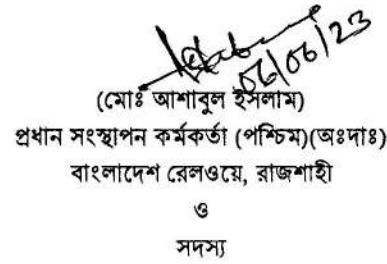 06/06/23
(মোঃ আশাবুল ইসলাম)
প্রধান সংস্থাপন কর্মকর্তা (পশ্চিম)(অঃদাঃ)
বাংলাদেশ রেলওয়ে, রাজশাহী
ও
সদস্য